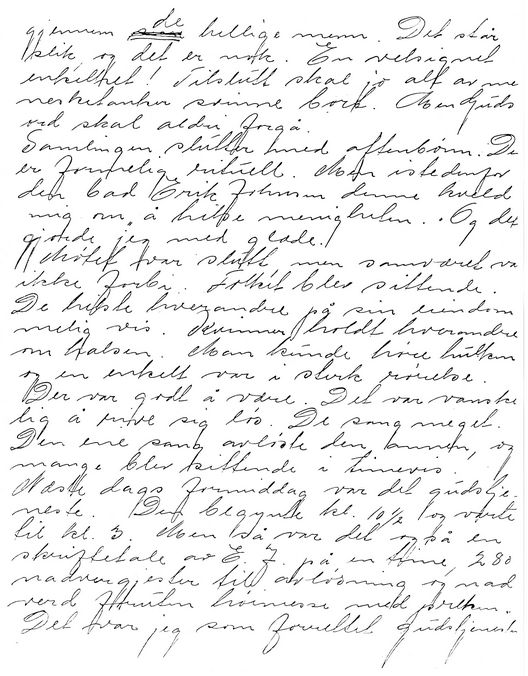 de
gjennem hellige menn. Det står
slik og det er nok. En velsignet
enkelthet! Tilslutt skal jo alt av me
nesketanker svinne bort. Men Guds
ord skal aldri forgå.
Samlingen slutter med aftenbønn. De
er formelig rituell. Men istedenfor
den bad Erik Johnsen denne kveld
mig om å hilse menigheten. Og det
gjorde jeg med glede.
Møtet var slutt men samværet va
ikke forbi. Folket blev sittende.
De hilste hverandre på sin eiendom
melig vis. Kvinner holdt hverandre
om halsen. Man kunde høre hulken
og en enkelt var i sterk rørelse.
Der var godt å være. Det var vanske
lig å rive sig løs. De sang meget.
Den ene sang avløste den annen, og
mange blev sittende i timevis.
Næste dags formiddag var det gudstje
neste. Den begynte kl. 10½ og varte
til kl. 3. Men så var det også en
skriftetale av E J. på en time, 280
nadvergjester til avløsning og nad
verd høimesse med preken.
Det var jeg som forrettet gudstjenest